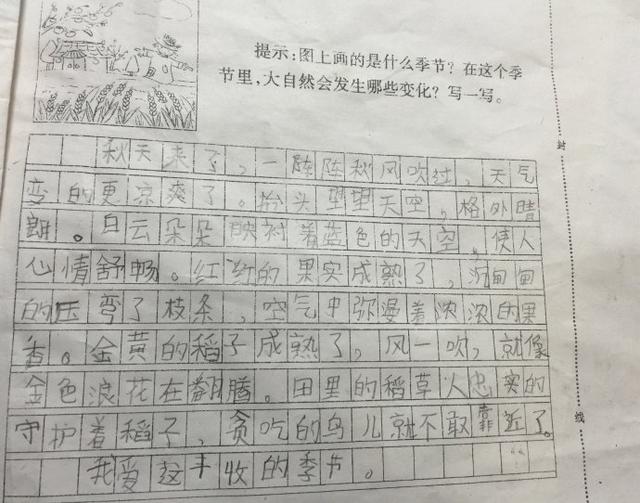 提示:图上画的是什么季节?在这个季
节里,大自然会发生哪些变化?写一写。
封
秋天来了,一阵阵秋风吹过,天气
变的更凉爽了。抬头望望天空,格外晴
朗。白云朵朵映衬着蓝色的天空,使人
心情舒畅。红红的果实成熟了,沉甸甸
的压弯了枝条,空气中弥漫着浓浓的果
香。金黄的稻子成熟了,风一吹,就像
金色浪花在翻腾。田里的稻草人忠实的
守护着稻子,贪吃的鸟儿就不敢靠近了。
线
我爱这丰收的季节。